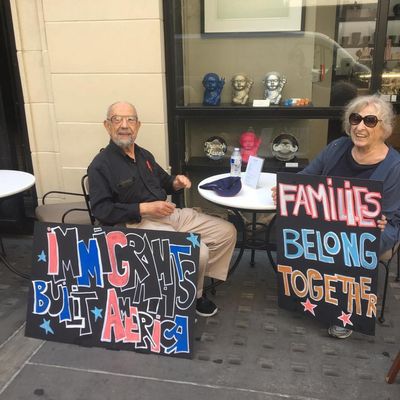 IMMIGRANTS
BUILT AMERICA
FAMILIES
BELONG
TOGETHER